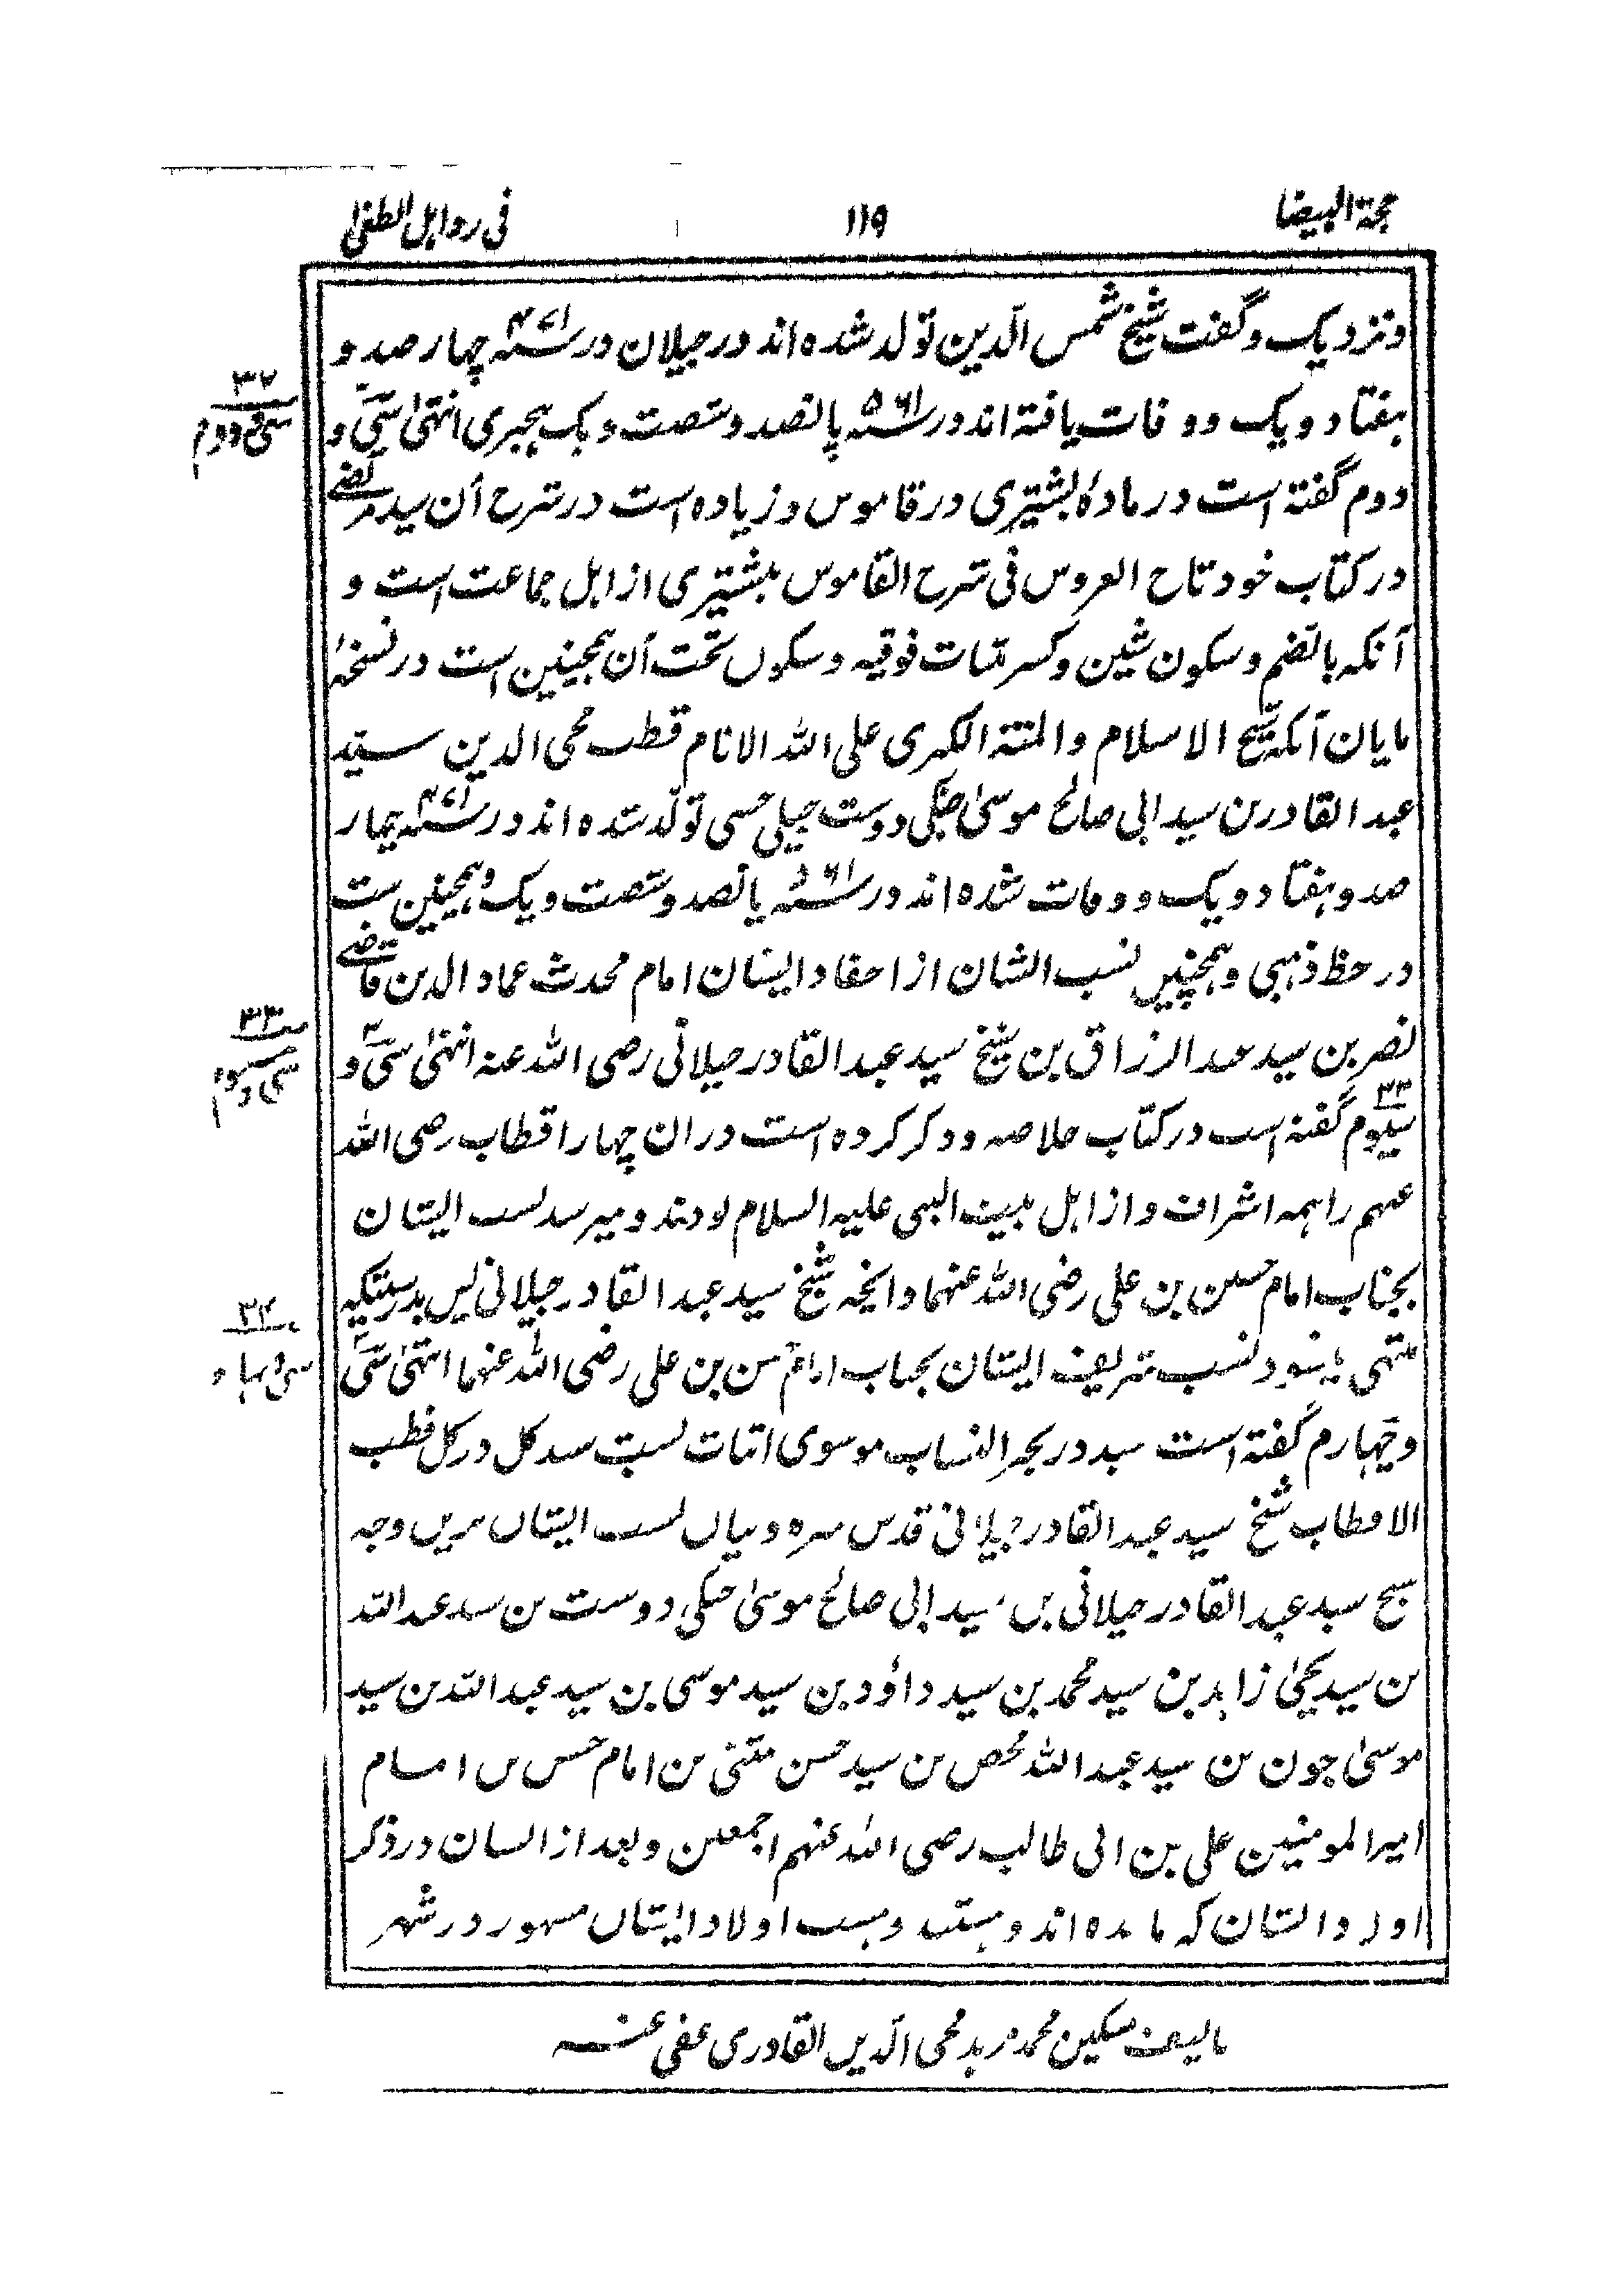 حجة البیضا ۱۱۹ فی رد اہل الطغیٰ
ونزدیک وگفت شیخ شمس الدّین تولد شدہ اند در جیلان در ۴۷۱ سنہ چہار صد و
ہفتاد و یک و وفات یافتہ اند در ۵۶۱ سنہ پانصد و شصت و یک ہجری انتہیٰ سیّ و
دوم گفتہ است در مادہٴ بشتیری در قاموس و زیادہ است در شرح أن سید مرتضے
در کتاب خود تاج العروس فی شرح القاموس بشتیری از اہل جماعت است و
آنکہ بالضم و سکون شین و کسر مثنات فوقیہ و سکون تحت أن ہمچنین است در نسخہٴ
مایان آنکہ شیخ الاسلام والمنتہ الکبری علی اللہ الانام قطب محی الدین سیّد
عبد القادر بن سید ابی صالح موسیٰ جنگی دوست جیلی حسنی تولّد شدہ اند در ۴۷۱ سنہ چہار
صد و ہفتاد و یک و وفات شدہ اند در ۵۶۱ سنہ پانصد و شصت و یک و ہمچنین ست
در حظ ذہبی و ہمچنیں نسب الشان از احفاد ایشان امام محدث عماد الدین قاضے
نصر بن سید عبد الرزاق بن شیخ سید عبد القادر جیلانی رضی اللہ عنہ انتہیٰ سیّ و
۳۳
سیوم گفتہ است در کتاب خلاصہ و ذکر کردہ است در ان چہار اقطاب رضی اللہ
عنہم را ہمہ اشراف و از اہل بیت النبی علیہ السلام بودند و میرسد نسب ایشان
بجناب امام حسین بن علی رضی اللہ عنہما و انچہ شیخ سید عبد القادر جیلانی پس بدرستیکہ
منتہی میشود نسب شریف ایشان بجناب امام حسن بن علی رضی اللہ عنہما انتہیٰ سیّ
و چہارم گفتہ است سید در بحر الانساب موسوی اثبات نسبت سید کل در کل قطب
الاقطاب شیخ سید عبد القادر جیلانی قدس سرہ و بیان نسب ایشاں بریں وجہ
شیخ سید عبد القادر جیلانی بن سید ابی صالح موسیٰ جنگی دوست بن سید عبد اللہ
بن سید یحیٰی زاہد بن سید محمد بن سید داؤد بن سید موسی بن سید عبد اللہ بن سید
موسیٰ جون بن سید عبد اللہ محض بن سید حسن مثنی بن امام حسن بن امام
امیر المومنین علی بن ابی طالب رضی اللہ عنہم اجمعین و بعد از ایشان در ذکر
اولاد ایشان کہ ماندہ اند و ہستند و ہست اولاد ایشاں مشہور در شہر
۳۲
سی و دوم
۳۳
سی و سوم
۳۴
سی و چہارم
تالیف مسکین محمد مرید محی الدّین القادری عفی عنہ